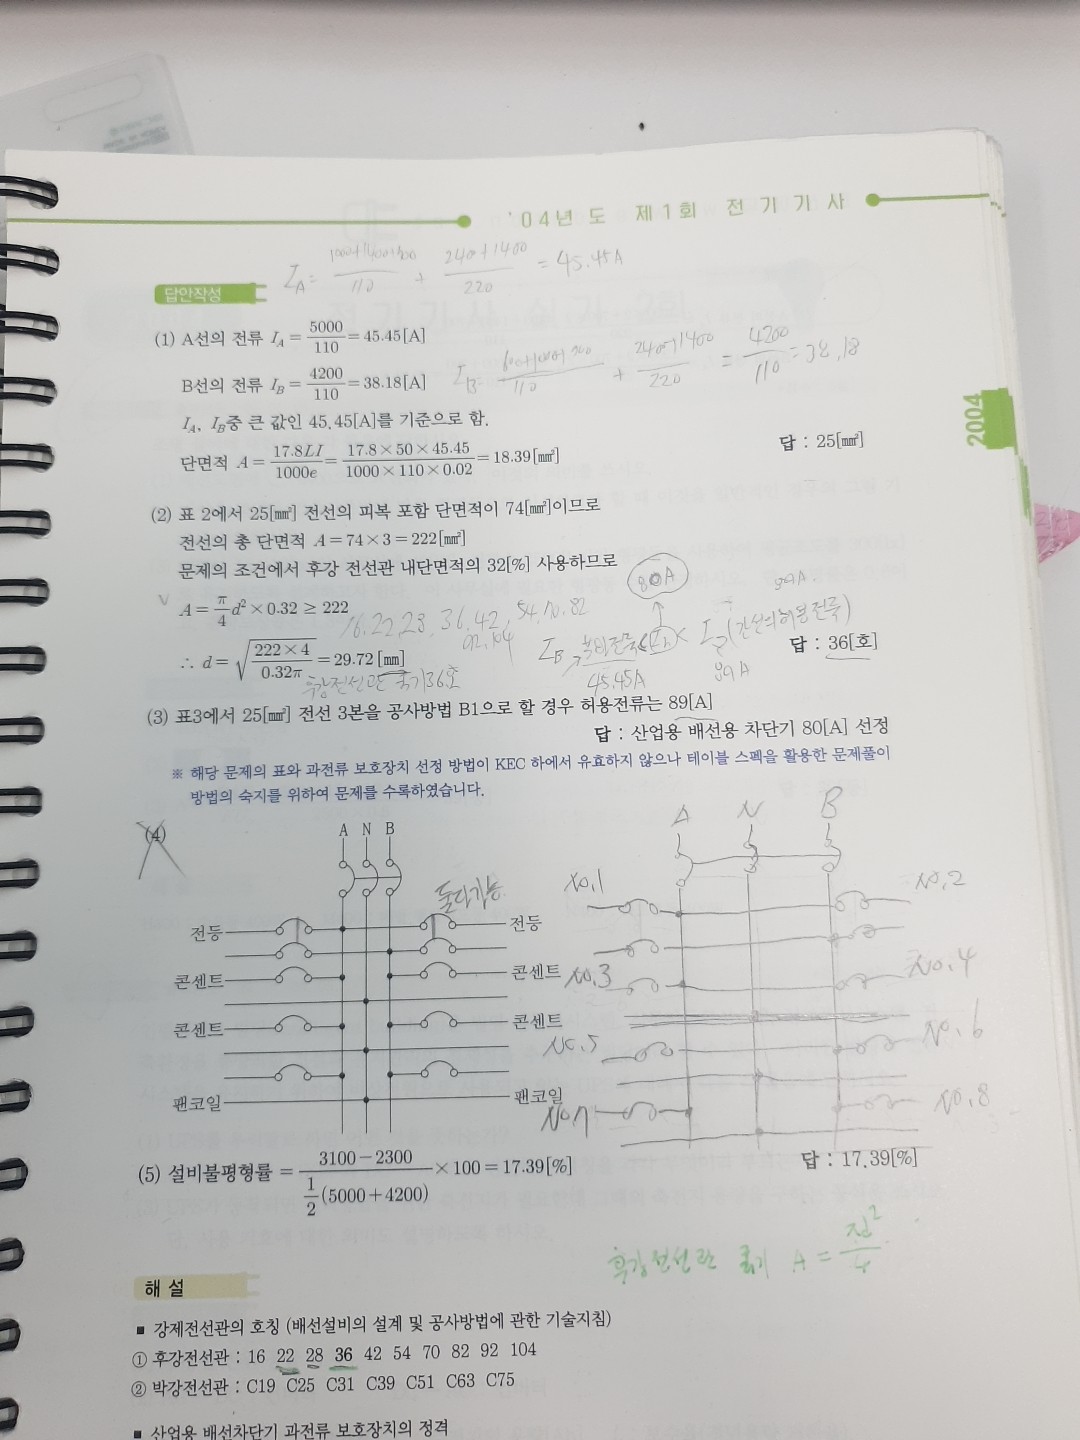 '04년도 제1회 전기기사
I_A = + 2400+1400/220 = 45.45A
110
답안작성
(1) A선의 전류 I_A = 5000/110 = 45.45[A]
B선의 전류 I_B = 4200/110 = 38.18[A]
I_B = /110 + 2400+1400/220 = 4200/110 = 38.18
I_A, I_B중 큰 값인 45.45[A]를 기준으로 함.
단면적 A = 17.8LI/1000e = 17.8×50×45.45/1000×110×0.02 = 18.39[㎟]
답 : 25[㎟]
2004
(2) 표 2에서 25[㎟] 전선의 피복 포함 단면적이 74[㎟]이므로
전선의 총 단면적 A = 74×3 = 222[㎟]
문제의 조건에서 후강 전선관 내단면적의 32[%] 사용하므로
80A
89A
A = π/4 d²×0.32 ≥ 222
16, 22, 28, 36, 42, 54, 70, 82
92, 104
∴ d = √(222×4/0.32π) = 29.72[㎜]
후강전선관 굵기 36호
I_B 부하전류 < I_n < I_Z (간선의 허용전류)
45.45A
89A
답 : 36[호]
(3) 표3에서 25[㎟] 전선 3본을 공사방법 B1으로 할 경우 허용전류는 89[A]
답 : 산업용 배선용 차단기 80[A] 선정
※ 해당 문제의 표와 과전류 보호장치 선정 방법이 KEC 하에서 유효하지 않으나 테이블 스펙을 활용한 문제풀이
방법의 숙지를 위하여 문제를 수록하였습니다.
(4)
A N B
A N B
둘다가능
전등 전등
콘센트 콘센트
콘센트 콘센트
팬코일 팬코일
No.1 No.2
No.3 No.4
No.5 No.6
No.7 No.8
(5) 설비불평형률 = 3100-2300/½(5000+4200) ×100 = 17.39[%]
답 : 17.39[%]
후강전선관 굵기 A = πd²/4
해설
■ 강제전선관의 호칭 (배선설비의 설계 및 공사방법에 관한 기술지침)
① 후강전선관 : 16 22 28 36 42 54 70 82 92 104
② 박강전선관 : C19 C25 C31 C39 C51 C63 C75
■ 산업용 배선차단기 과전류 보호장치의 정격